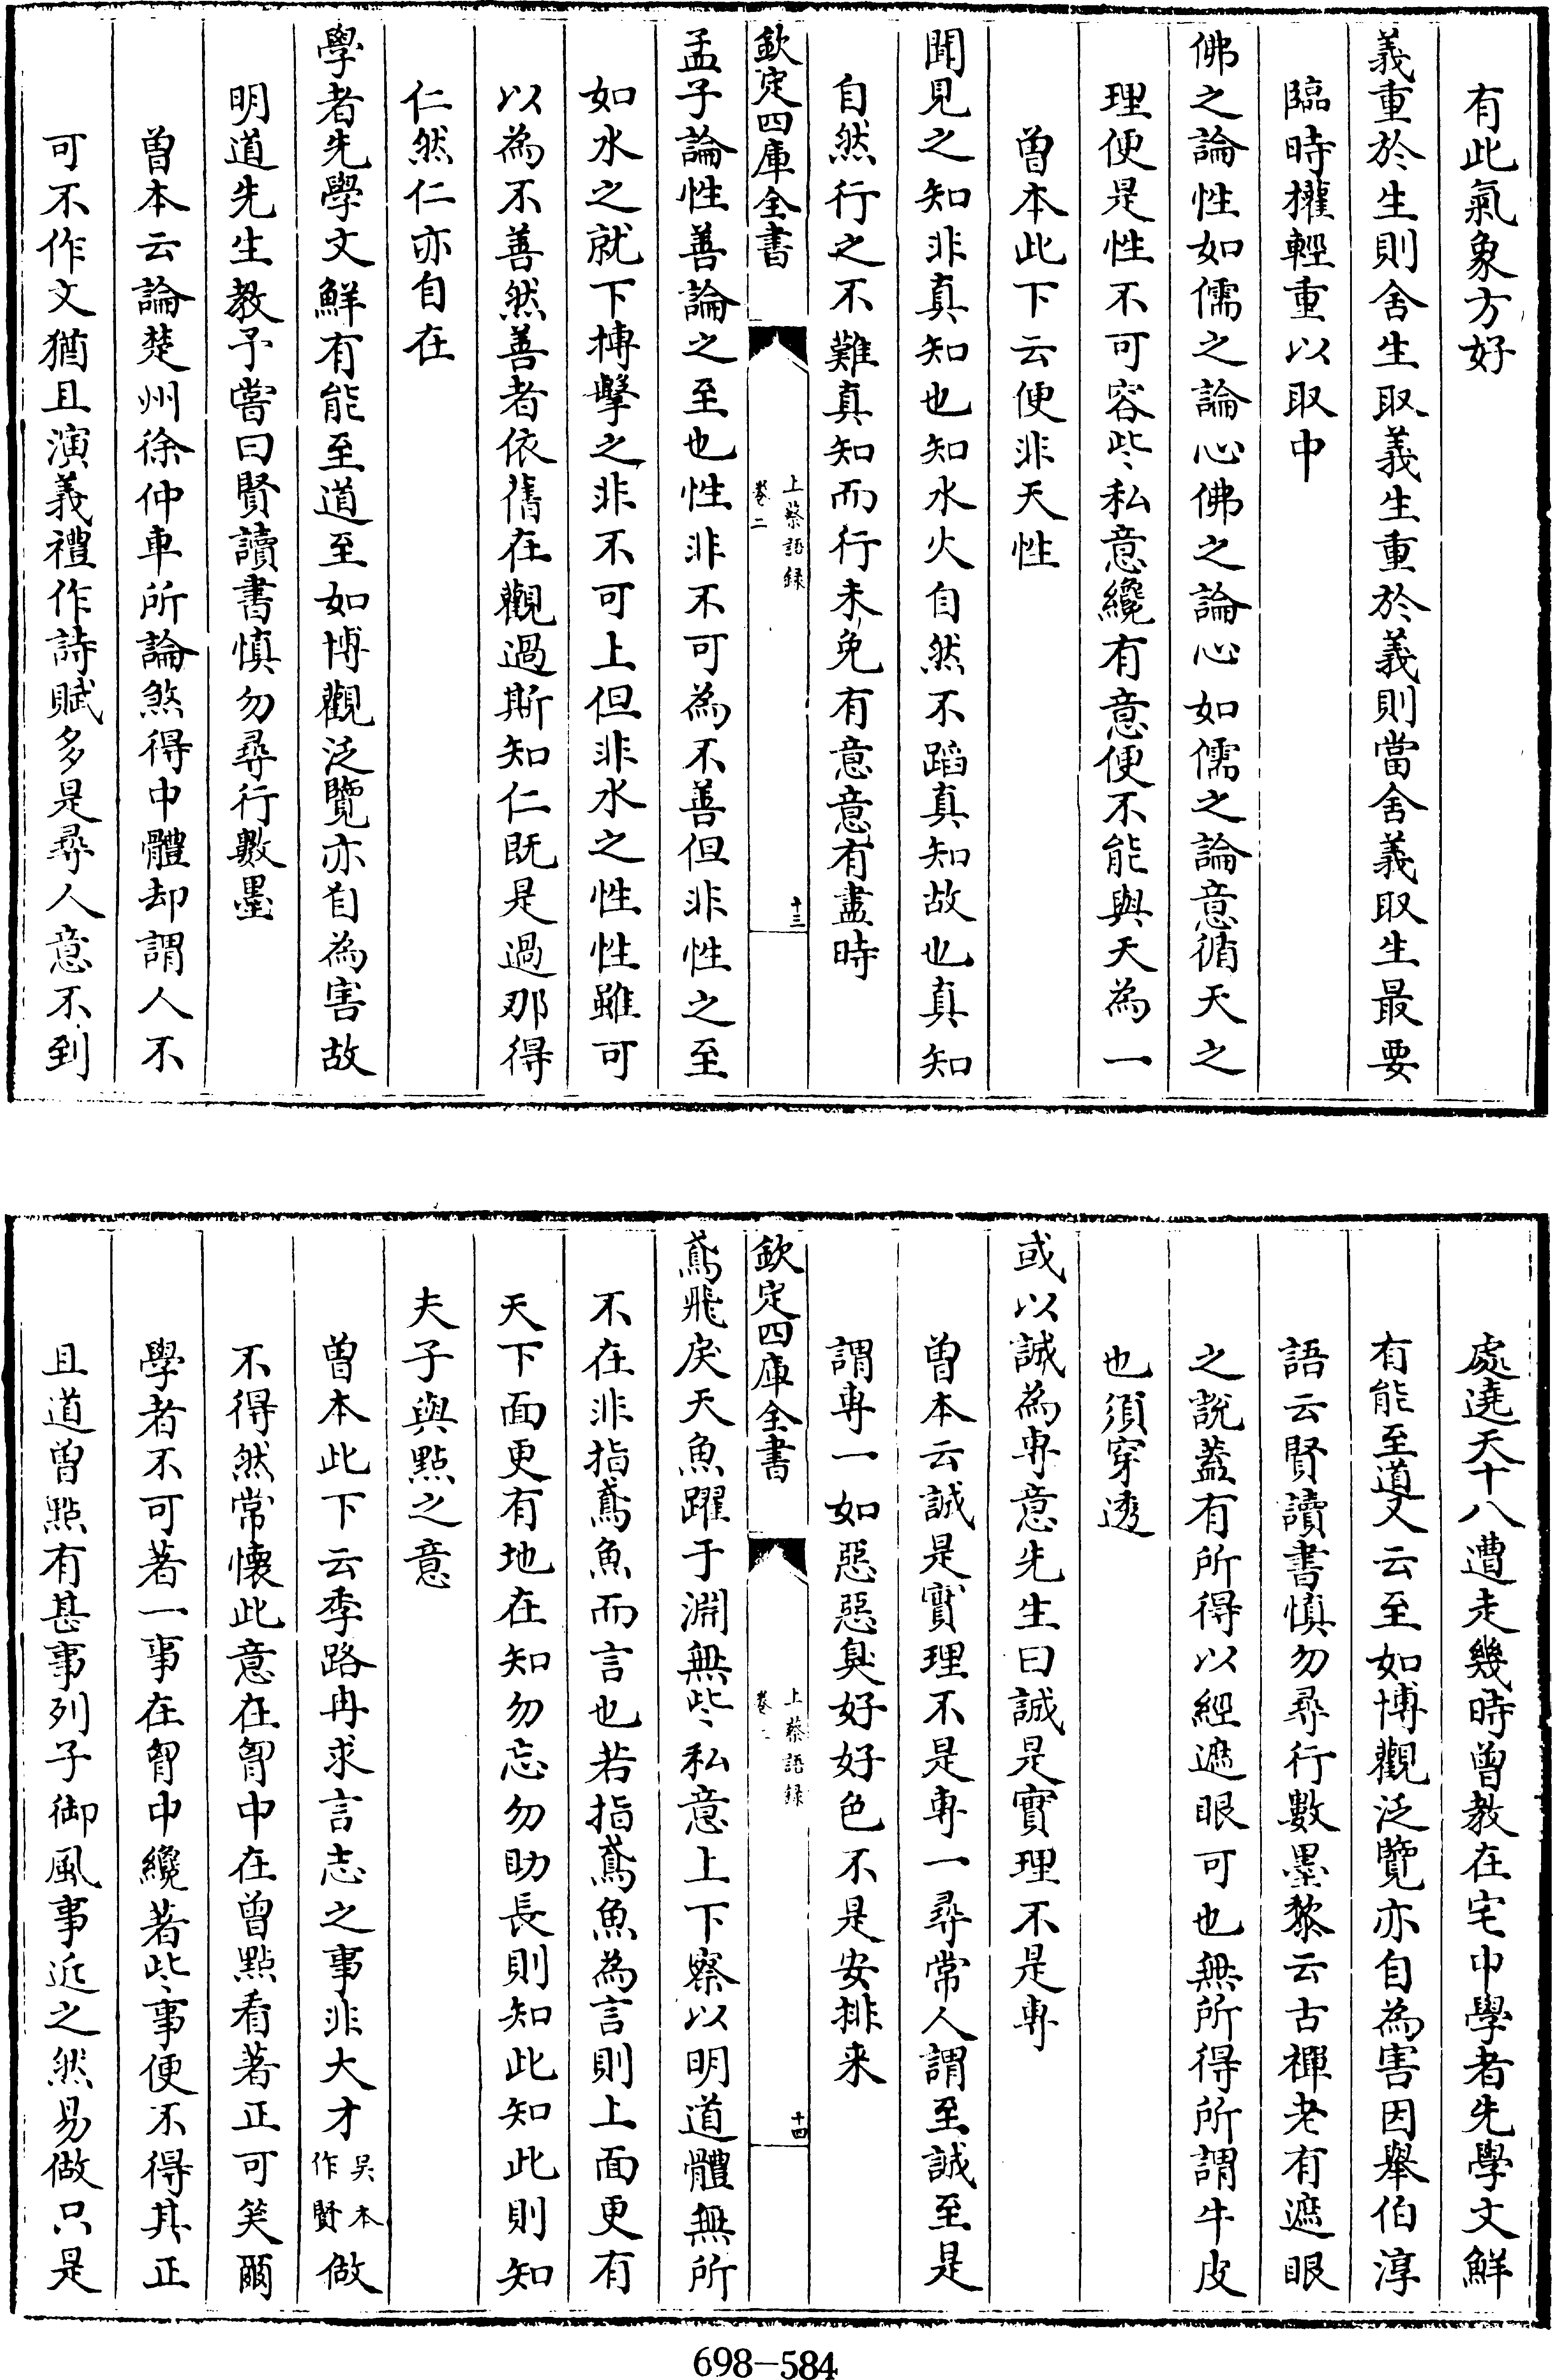 有此氣象方好
義重於生則舍生取義生重於義則當舍義取生最要
臨時權輕重以取中
佛之論性如儒之論心佛之論心如儒之論意循天之
理便是性不可容些私意纔有意便不能與天為一
曽本此下云便非天性
聞見之知非真知也知水火自然不蹈真知故也真知
自然行之不難真知而行未免有意意有盡時
欽定四庫全書
上蔡語録
卷二
十三
孟子論性善論之至也性非不可為不善但非性之至
如水之就下搏擊之非不可上但非水之性性雖可
以為不善然善者依舊在觀過斯知仁既是過那得
仁然仁亦自在
學者先學文鮮有能至道至如博觀泛覽亦自為害故
明道先生教予嘗曰賢讀書慎勿尋行數墨
曽本云論楚州徐仲車所論煞得中體却謂人不
可不作文猶且演義禮作詩賦多是尋人意不到
處遶天十八遭走幾時曽教在宅中學者先學文鮮
有能至道又云至如博觀泛覽亦自為害因舉伯淳
語云賢讀書慎勿尋行數墨黎云古禪老有遮眼
之說蓋有所得以經遮眼可也無所得所謂牛皮
也須穿透
或以誠為專意先生曰誠是實理不是專
曽本云誠是實理不是專一尋常人謂至誠至是
謂專一如惡惡臭好好色不是安排来
欽定四庫全書
上蔡語録
卷二
十四
鳶飛戾天魚躍于淵無些私意上下察以明道體無所
不在非指鳶魚而言也若指鳶魚為言則上面更有
天下面更有地在知勿忘勿助長則知此知此則知
夫子與點之意
曽本此下云季路冉求言志之事非大才吳本作賢做
不得然常懷此意在胷中在曽點看著正可笑爾
學者不可著一事在胷中纔著些事便不得其正
且道曽點有甚事列子御風事近之然易做只是
698-584